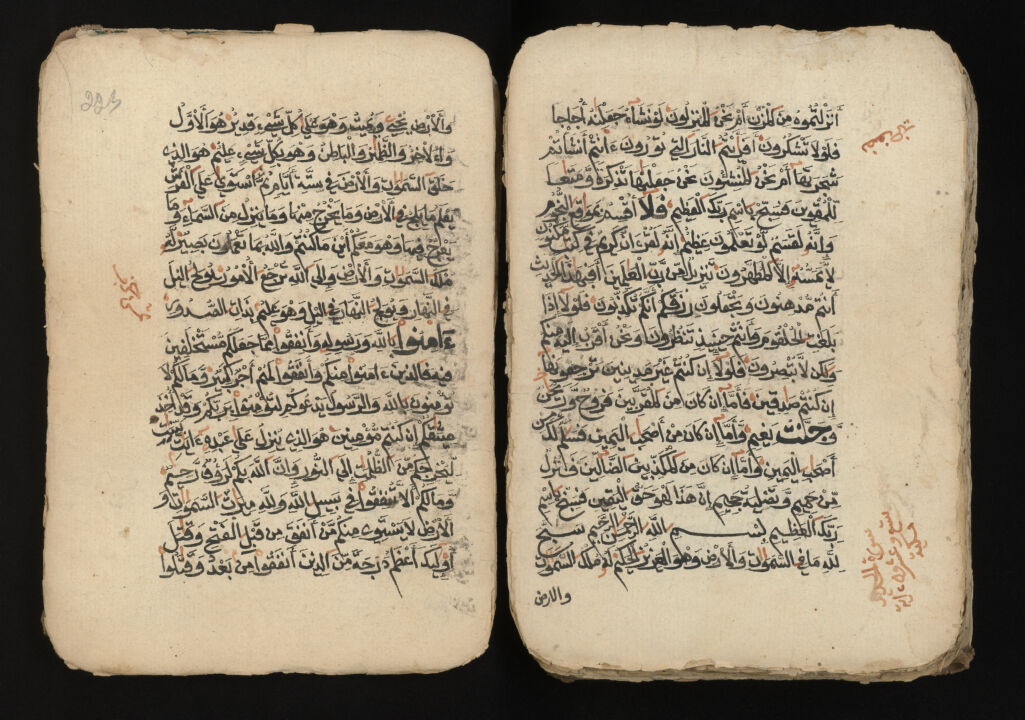 أنزلتموه من المزن أم نحن المنزلون لو نشاء جعلنه أجاجا
فلولا تشكرون أفرءيتم النار التي تورون ءانتم أنشأتم
شجرتها أم نحن المنشئون نحن جعلنها تذكرة ومتعا
للمقوين فسبح باسم ربك العظيم فلا أقسم بموقع النجوم
وإنه لقسم لو تعلمون عظيم إنه لقرءان كريم في كتب مكنون
لا يمسه إلا المطهرون تنزيل من رب العلمين أفبهذا الحديث
أنتم مدهنون وتجعلون رزقكم أنكم تكذبون فلولا إذا
بلغت الحلقوم وأنتم حينئذ تنظرون ونحن أقرب إليه منكم
ولكن لا تبصرون فلولا إن كنتم غير مدينين ترجعونها
إن كنتم صدقين فأما إن كان من المقربين فروح وريحن
وجنت نعيم وأما إن كان من أصحب اليمين فسلم لك من
أصحب اليمين وأما إن كان من المكذبين الضالين فنزل
من حميم وتصلية جحيم إن هذا لهو حق اليقين فسبح باسم
ربك العظيم بسم الله الرحمن الرحيم سبح
لله ما في السموت والأرض وهو العزيز الحكيم له ملك السموت
والارض
سورة الحديد
223
والأرض يحي ويميت وهو على كل شيء قدير هو الأول
والأخر والظهر والباطن وهو بكل شيء عليم هو الذي
خلق السموت والأرض في ستة أيام ثم استوى على العرش
يعلم ما يلج في الأرض وما يخرج منها وما ينزل من السماء وما
يعرج فيها وهو معكم أين ما كنتم والله بما تعملون بصير له
ملك السموت والأرض وإلى الله ترجع الأمور يولج اليل
في النهار ويولج النهار في اليل وهو عليم بذات الصدور
ءامنوا بالله ورسوله وأنفقوا مما جعلكم مستخلفين
فيه فالذين ءامنوا منكم وأنفقوا لهم أجر كبير وما لكم لا
تومنون بالله والرسول يدعوكم لتومنوا بربكم وقد أخذ
ميثقكم إن كنتم مومنين هو الذي ينزل على عبده ءايت بينت
ليخرجكم من الظلمت إلى النور وإن الله بكم لرءوف رحيم
وما لكم ألا تنفقوا في سبيل الله ولله ميرث السموت و
الأرض لا يستوي منكم من أنفق من قبل الفتح وقتل
أوليك أعظم درجة من الذين أنفقوا من بعد وقتلوا